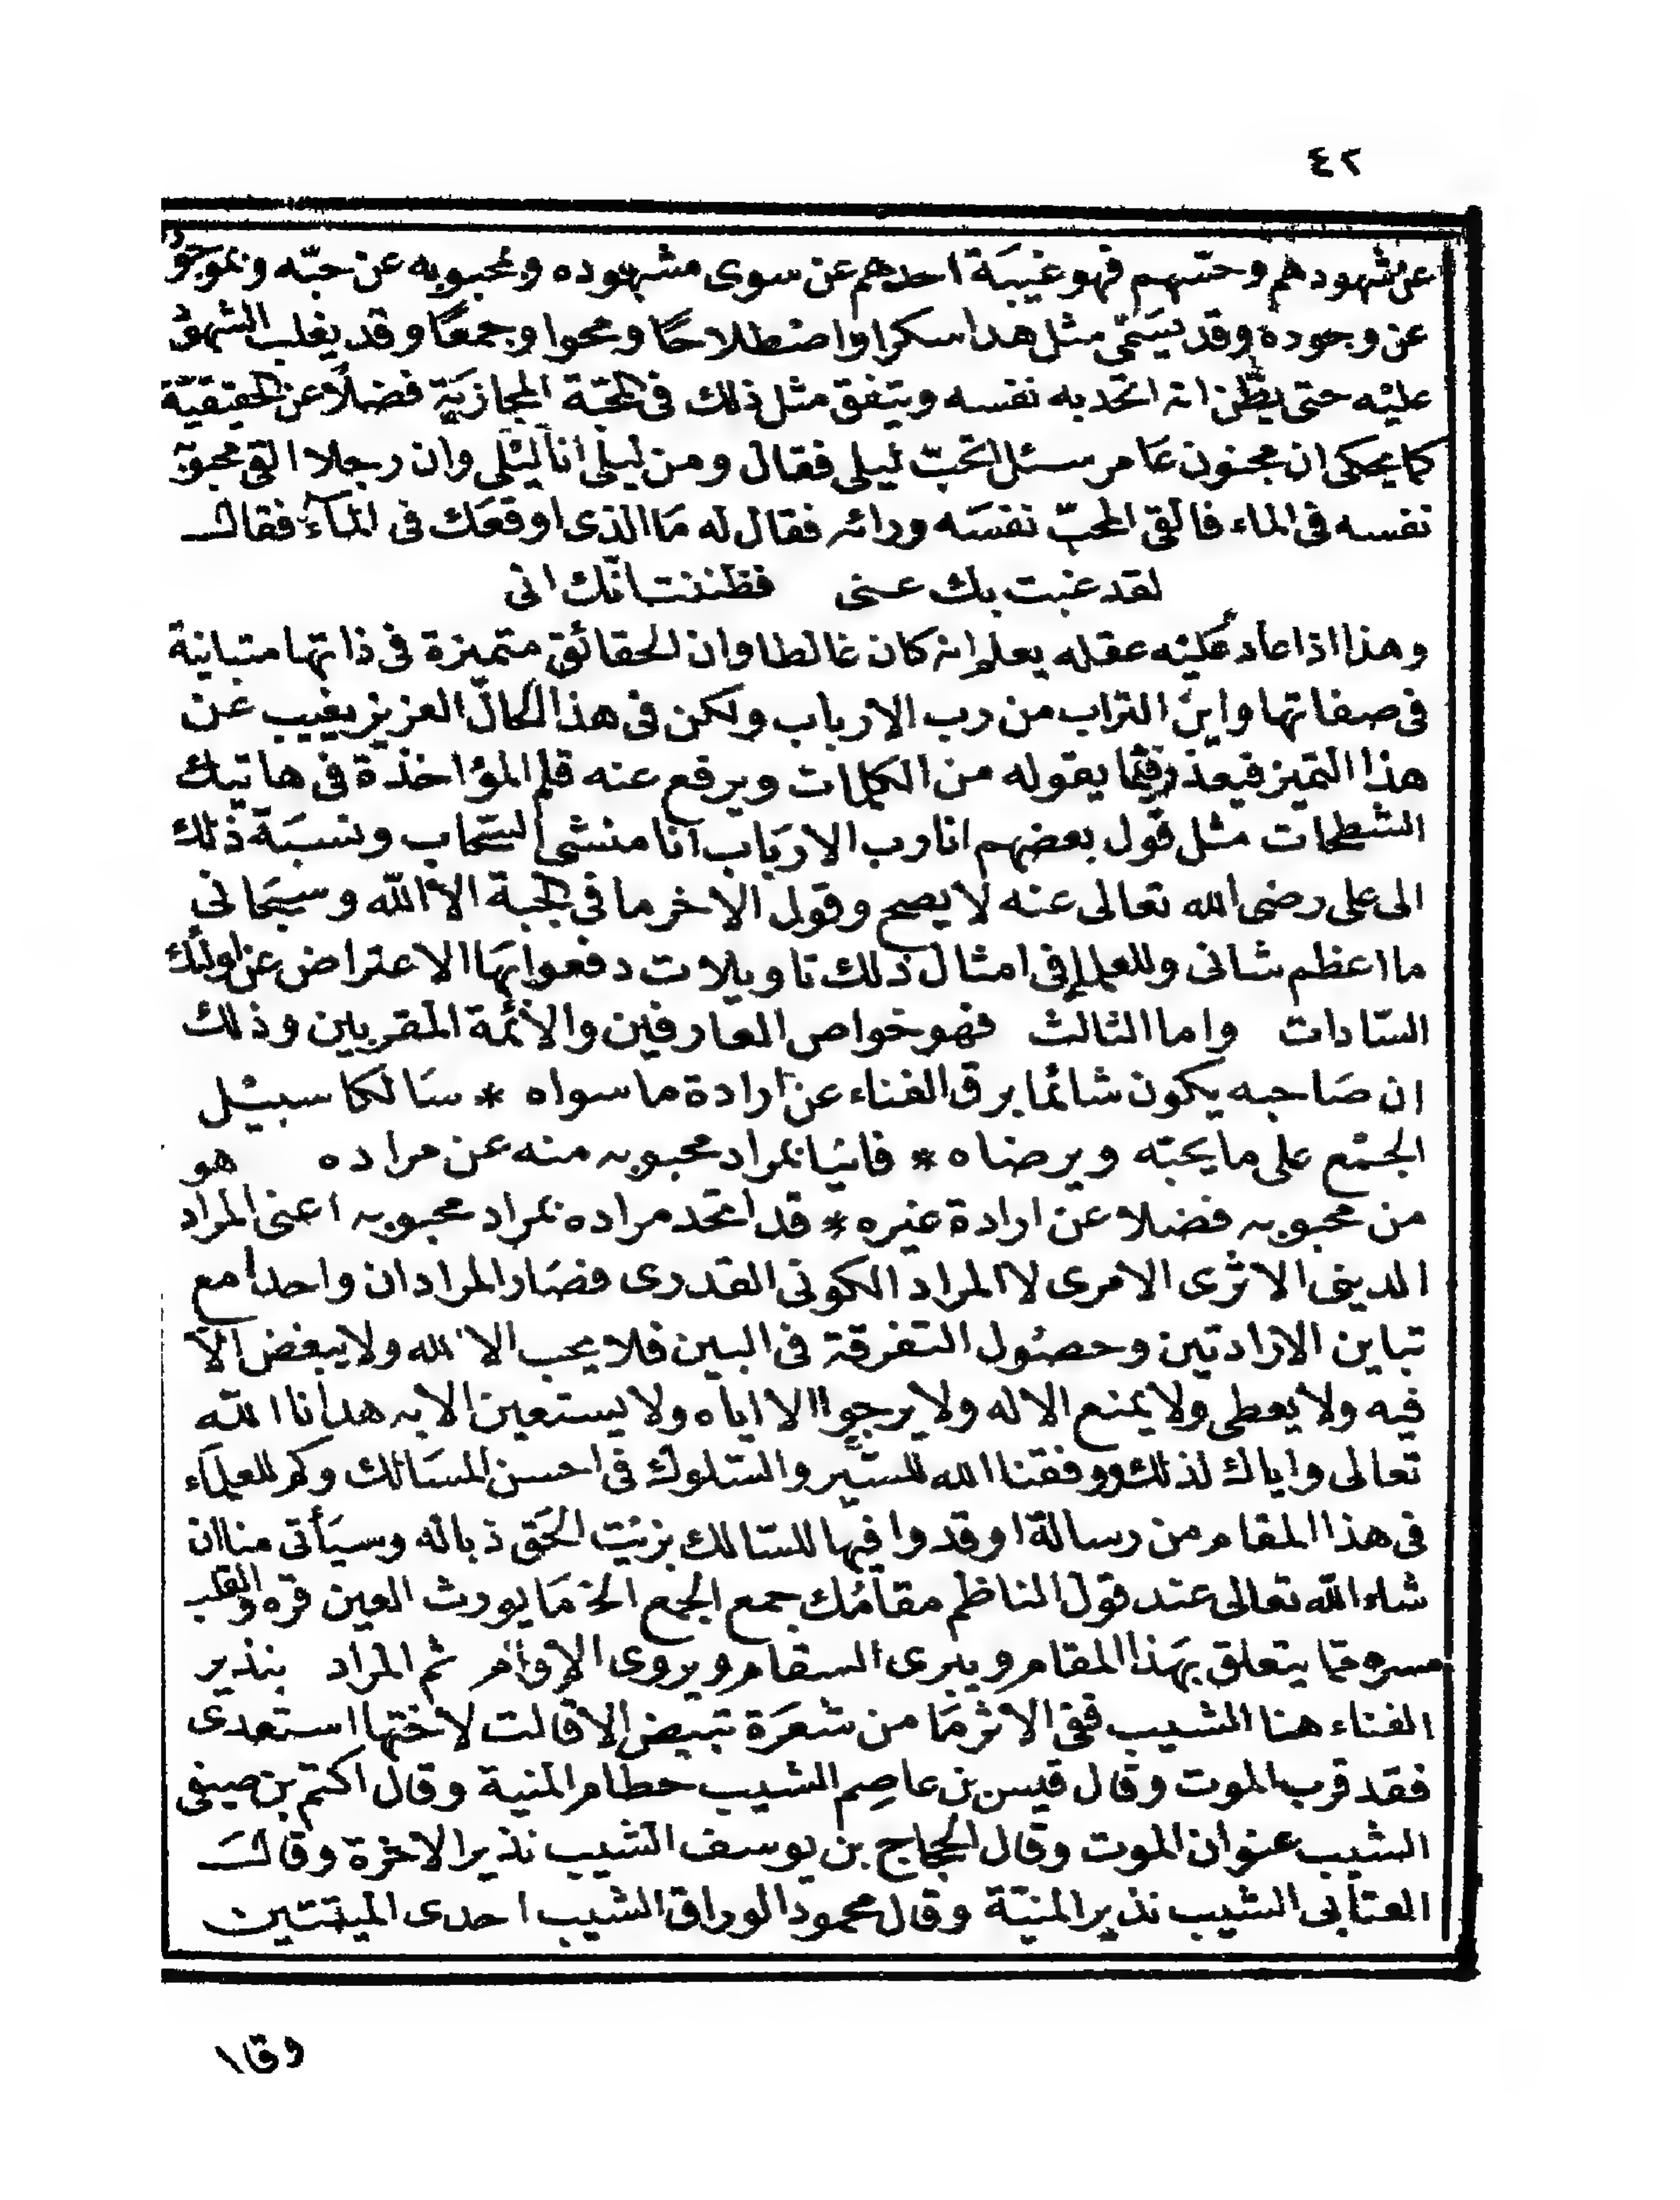 ٤٢
عن شهودهم وحسّهم فهو غيبَة احدهم عن سوى مشهوده وبمحبوبه عن حبّه وبموجود
عن وجوده وقد يسَمّى مثل هذا سكرا واصطلاحًا ومحوا وجمعًا وقد يغلب الشهود
عليْه حتى يظّن انه اتحد به نفسه ويتفق مثل ذلك فى المحبّة المجازيَة فضلًا عن الحقيقيّة
كما يحكى ان مجنون عَامر سئل اتحبّ ليلى فقال ومن ليلى انا ليْلى وان رجلا القى محبوبه
نفسه فى الماء فالقى المحبّ نفسَه ورائه فقال له مَا الذى اوقعَك فى المآء فقال
لقد غبت بك عنى فظننت انّك انى
وهذا اذا عاد عَليْه عقله يعلم انه كان غالطا وان الحقائق متميزة فى ذاتها متباينة
فى صفاتها واين التراب من رب الارباب ولكن فى هذا الحال العزيز يغيب عن
هذا التميز فيعذر فيما يقوله من الكلمات ويرفع عنه قلم المؤاخذة فى هاتيك
الشطحات مثل قول بعضهم انا رب الاربَاب انا منشى السحاب ونسبَة ذلك
الى على رضى الله تعالى عنه لا يصح وقول الاخر ما فى الجبة الا الله وسبحَانى
ما اعظم شانى وللعلماء فى امثال ذلك تاويلات دفعوا بهَا الاعتراض عن اولئك
السّادات واما الثالث فهو خواص العارفين والائمة المقربين وذلك
ان صَاحبه يكون شائما برق الفناء عن ارادة ما سواه * سَالكا سبيْل
الجمْع على ما يحبّه ويرضاه * فانيًا بمراد محبوبه منه عن مراده هو
من محبوبه فضلا عن ارادة غيره * قد اتحد مراده بمراد محبوبه اعنى المراد
الدينى الاثرى الامرى لا المراد الكونى القدرى فصَار المرادان واحدا مع
تباين الارادتين وحصُول التفرقة فى البين فلا يحب الا لله ولا يبغض الّا
فيه ولا يعطى ولا يمنع الا له ولا يرجوا الا اياه ولا يستعين الا به هدانا الله
تعالى واياك لذلك ووفقنا الله للسّير والسّلوك فى احسن المسَالك وكم للعلمآء
فى هذا المقام من رسالة اوقدوا فيها للسّالك بزيْت الحَق ذباله وسيَأتى منا ان
شاء الله تعالى عند قول الناظم مقامُك جمع الجمع الخ مَا يورث العين قره والقلب
مسره مما يتعلق بهَذا المقام ويبرى السقام ويروى الاوام ثم المراد بنذير
الفناء هنا الشيب ففى الاثر مَا من شعرَة تبيض الا قالت لاختها استعدى
فقد قرب الموت وقال قيس بن عاصِم الشيب حطام المنية وقال اكتم بن صيفى
الشيب عنوان الموت وقال الحجاج بن يوسف الشيب نذير الاخرة وقال
العتابى الشيب نذير المنيّة وقال محمود الوراق الشيب احدى الميتتين
وقا